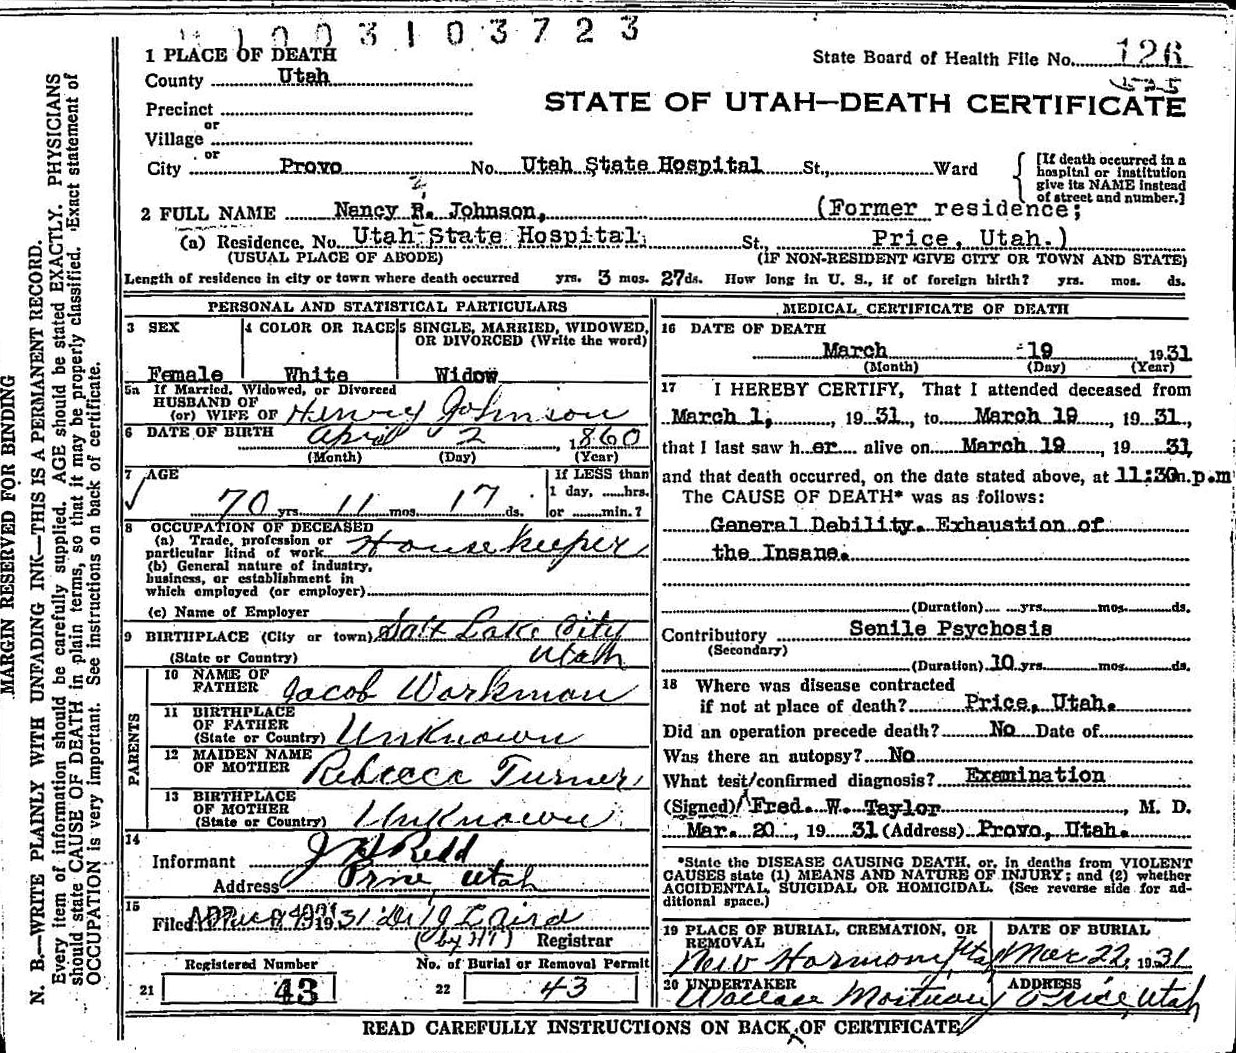 1003103723
1 PLACE OF DEATH
State Board of Health File No. 126
County Utah
525
STATE OF UTAH—DEATH CERTIFICATE
Precinct
or
Village
or
City Provo No. Utah State Hospital St., Ward
[If death occurred in a
hospital or institution
give its NAME instead
of street and number.]
2 FULL NAME Nancy R. Johnson, (Former residence;
(a) Residence. No. Utah State Hospital. St., Price, Utah.)
(USUAL PLACE OF ABODE) (IF NON-RESIDENT GIVE CITY OR TOWN AND STATE)
Length of residence in city or town where death occurred yrs. 3 mos. 27 ds. How long in U. S., if of foreign birth? yrs. mos. ds.
PERSONAL AND STATISTICAL PARTICULARS
3 SEX
Female
4 COLOR OR RACE
White
5 SINGLE, MARRIED, WIDOWED,
OR DIVORCED (Write the word)
Widow
5a If Married, Widowed, or Divorced
HUSBAND OF
(or) WIFE OF Henry Johnson
6 DATE OF BIRTH April 2, 1860
(Month) (Day) (Year)
7 AGE
70 yrs. 11 mos. 17 ds.
If LESS than
1 day, ......hrs.
or ......min.?
8 OCCUPATION OF DECEASED
(a) Trade, profession or
particular kind of work Housekeeper
(b) General nature of industry,
business, or establishment in
which employed (or employer)
(c) Name of Employer
9 BIRTHPLACE (City or town) Salt Lake City
(State or Country) Utah
PARENTS
10 NAME OF
FATHER Jacob Workman
11 BIRTHPLACE
OF FATHER
(State or Country) Unknown
12 MAIDEN NAME
OF MOTHER Rebecca Turner
13 BIRTHPLACE
OF MOTHER
(State or Country) Unknown
14
Informant J H Redd
Address Price, Utah
15
Filed 1931
(by HT) Registrar
Registered Number No. of Burial or Removal Permit
21 43 22 43
MEDICAL CERTIFICATE OF DEATH
16 DATE OF DEATH
March 19 1931
(Month) (Day) (Year)
17 I HEREBY CERTIFY, That I attended deceased from
March 1, 1931, to March 19, 1931,
that I last saw her alive on March 19, 1931,
and that death occurred, on the date stated above, at 11:30m.p.m
The CAUSE OF DEATH* was as follows:
General Debility. Exhaustion of
the Insane.
(Duration) yrs. mos. ds.
Contributory Senile Psychosis
(Secondary)
(Duration) 10 yrs. mos. ds.
18 Where was disease contracted
if not at place of death? Price, Utah.
Did an operation precede death? No Date of
Was there an autopsy? No
What test confirmed diagnosis? Examination
(Signed) Fred. W. Taylor, M. D.
Mar. 20, 1931 (Address) Provo, Utah.
*State the DISEASE CAUSING DEATH, or, in deaths from VIOLENT
CAUSES state (1) MEANS AND NATURE OF INJURY; and (2) whether
ACCIDENTAL, SUICIDAL OR HOMICIDAL. (See reverse side for ad-
ditional space.)
19 PLACE OF BURIAL, CREMATION, OR
REMOVAL
New Harmony Uta
DATE OF BURIAL
Mar 22, 1931
20 UNDERTAKER
Wallace Mortuary
ADDRESS
Price, Utah
READ CAREFULLY INSTRUCTIONS ON BACK OF CERTIFICATE
MARGIN RESERVED FOR BINDING
N. B.—WRITE PLAINLY WITH UNFADING INK—THIS IS A PERMANENT RECORD.
Every item of information should be carefully supplied. AGE should be stated EXACTLY. PHYSICIANS
should state CAUSE OF DEATH in plain terms, so that it may be properly classified. Exact statement of
OCCUPATION is very important. See instructions on back of certificate.